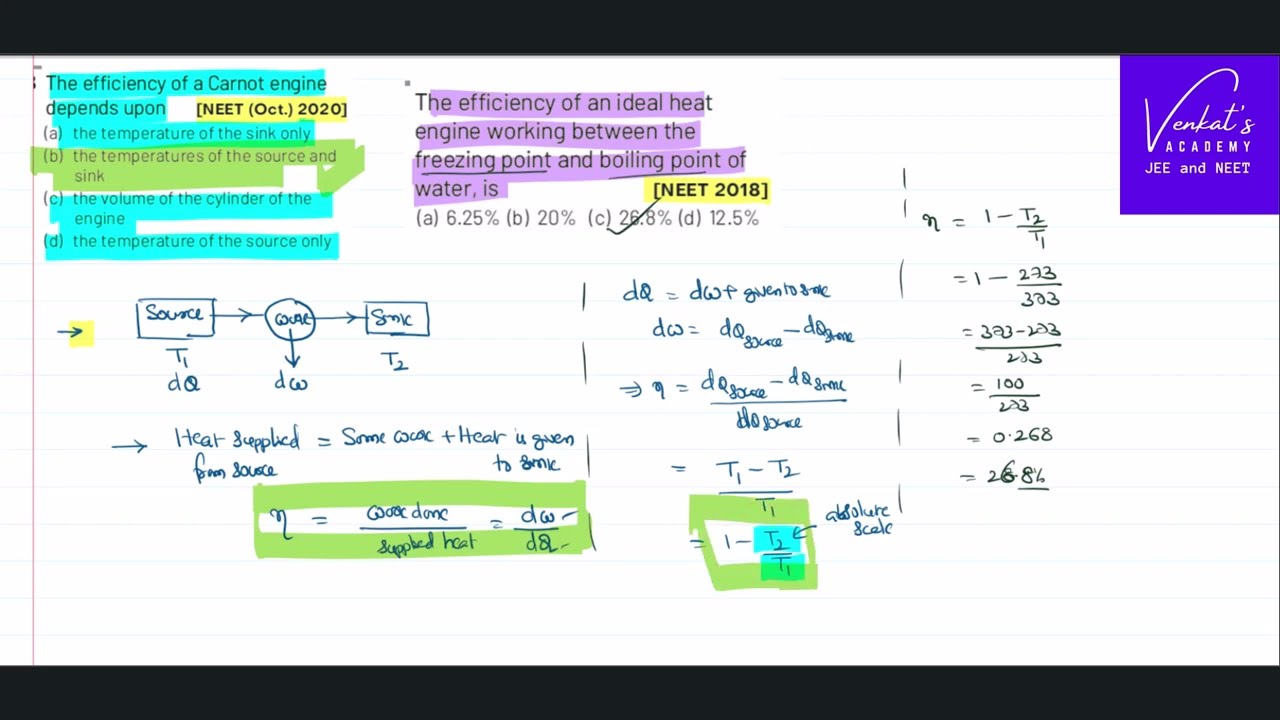 The efficiency of a Carnot engine
depends upon [NEET (Oct.) 2020]
(a) the temperature of the sink only
(b) the temperatures of the source and
sink
(c) the volume of the cylinder of the
engine
(d) the temperature of the source only
The efficiency of an ideal heat
engine working between the
freezing point and boiling point of
water, is [NEET 2018]
(a) 6.25% (b) 20% (c) 26.8% (d) 12.5%
Venkat's
ACADEMY
JEE and NEET
→ Source → work → Sink
T₁ T₂
dQ dω
→ Heat supplied = Some work + Heat is given
from source to sink
η = work done / supplied heat = dω / dQ
dQ = dω + given to sink
dω = dQ source - dQ sink
⇒ η = dQ source - dQ sink / dQ source
= T₁ - T₂ / T₁
= 1 - T₂ / T₁ ← absolute
scale
η = 1 - T₂ / T₁
= 1 - 273 / 373
= 373 - 273 / 273
= 100 / 273
= 0.268
= 26.8%